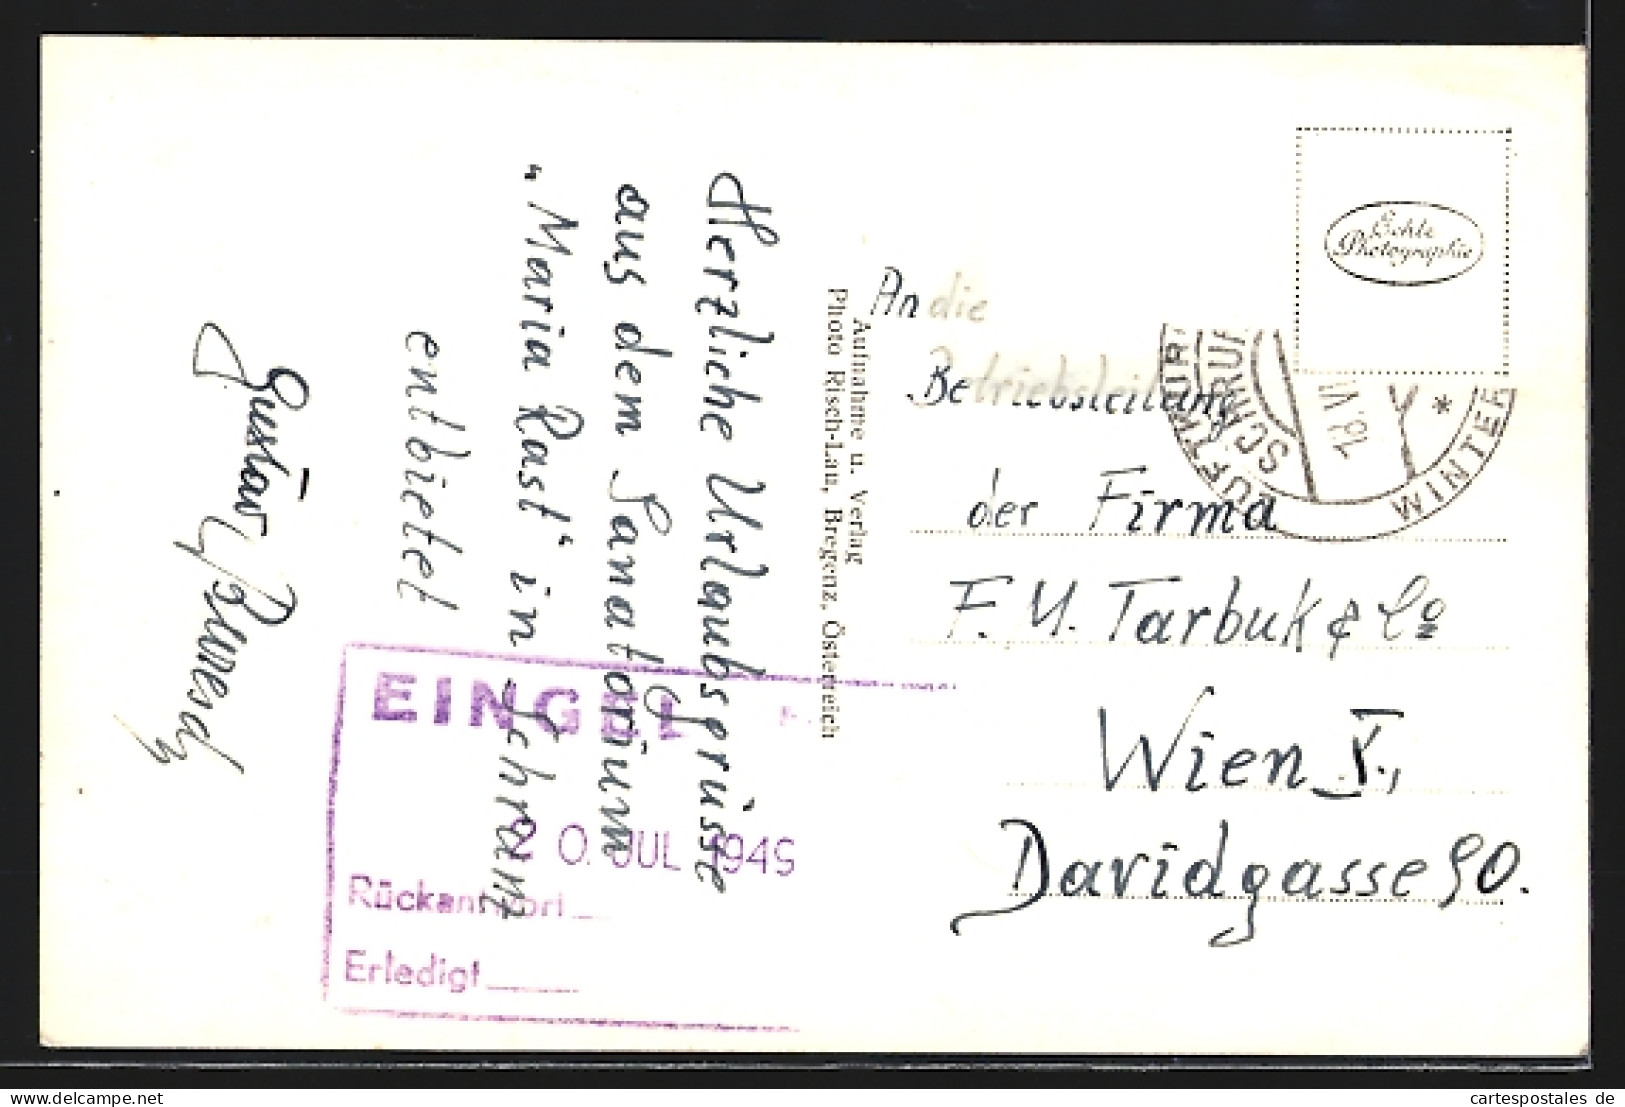 Herzliche Urlaubsgrüsse
aus dem Sanatorium
„Maria Rast“ in Schruns
entbietet
Gustav
Aufnahme u. Verlag
Photo Risch-Lau, Bregenz, Österreich
An die
Betriebsleitung
der Firma
F. M. Tarbuk & Co
Wien X.,
Davidgasse 90.
Echte
Photographie
LUFTKUR
SCHRUN
18. VI
*
WINTER
EING
20. JUL 1949
Rückantwort
Erledigt
www.delcampe.net
cartespostales de